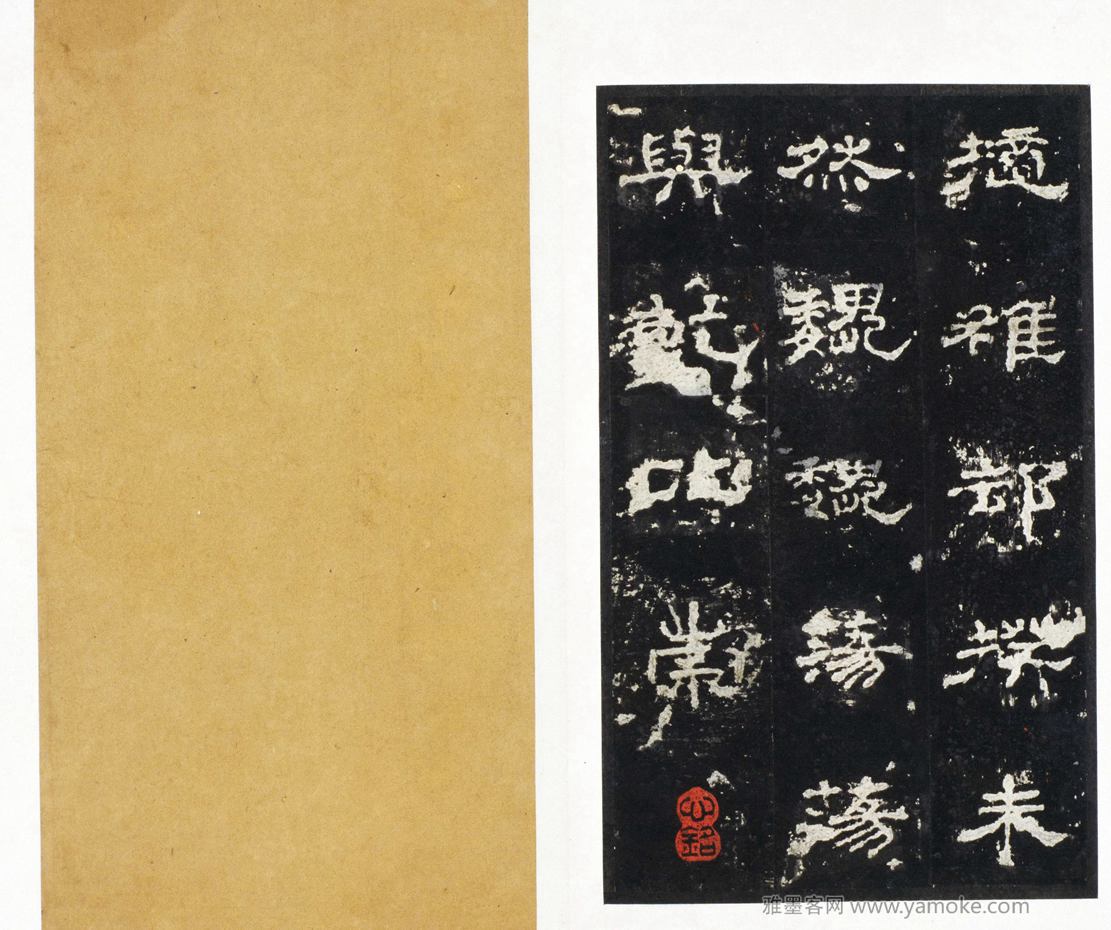 擿雒却揆未
然巍巍蕩蕩
與乾比崇
雅墨客网 www.yamoke.com